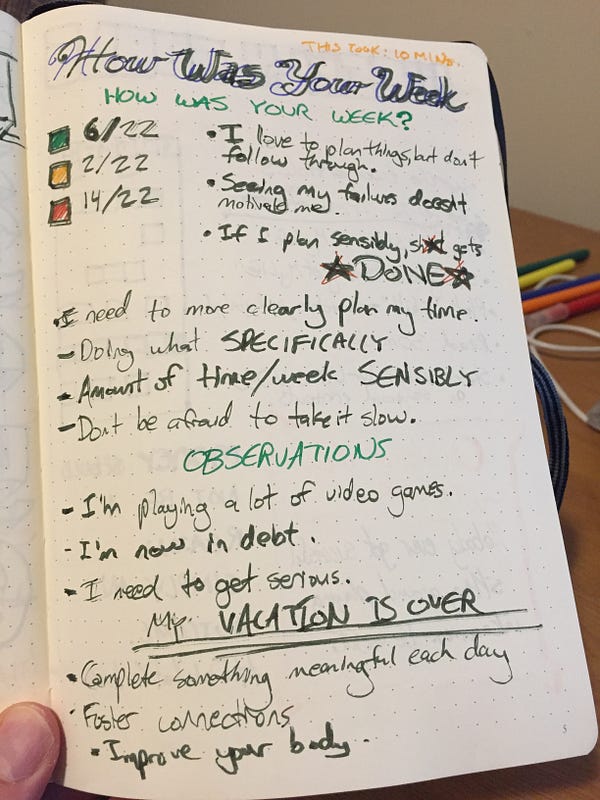 THIS TOOK: 10 MINS.
How Was Your Week
HOW WAS YOUR WEEK?
6/22
2/22
14/22
• I love to plan things, but don't
follow through.
• Seeing my failures doesn't
motivate me.
• If I plan sensibly, gets
DONE
• I need to more clearly plan my time.
- Doing what SPECIFICALLY
- Amount of time/week SENSIBLY
- Don't be afraid to take it slow.
OBSERVATIONS
- I'm playing a lot of video games.
- I'm now in debt.
- I need to get serious.
My VACATION IS OVER
• Complete something meaningful each day
• Foster connections
• Improve your body.
5